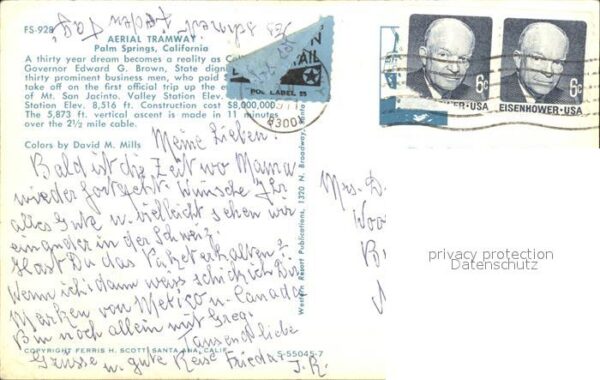 FS-928
AERIAL TRAMWAY
Palm Springs, California
A thirty year dream becomes a reality as Cali
Governor Edward G. Brown, State dign
thirty prominent business men, who paid $
take off on the first official trip up the e
of Mt. San Jacinto. Valley Station Elev.
Station Elev. 8,516 ft. Construction cost $8,000,000.
The 5,873 ft. vertical ascent is made in 11 minutes
over the 2½ mile cable.
Colors by David M. Mills
Meine Lieben!
Bald ist die Zeit wo Mama
wieder fortgeht. Wünsche Ihr
alles Gute u. vielleicht sehen wir
einander in der Schweiz.
Hast Du das Paket erhalten?
Wenn ich dann weg schick ich Dir
Marken von Mexico u. Canada
Bin noch allein mit Greg.
Tausend liebe
Grüsse u. gute Reise Frieda
J.R.
COPYRIGHT FERRIS H. SCOTT SANTA ANA, CALIF.
S-55045-7
Western Resort Publications, 1320 N. Broadway, Santa
AIL
LABEL
6¢
EISENHOWER·USA
6¢
EISENHOWER·USA
Mrs. D.
Woo
B
privacy protection
Datenschutz